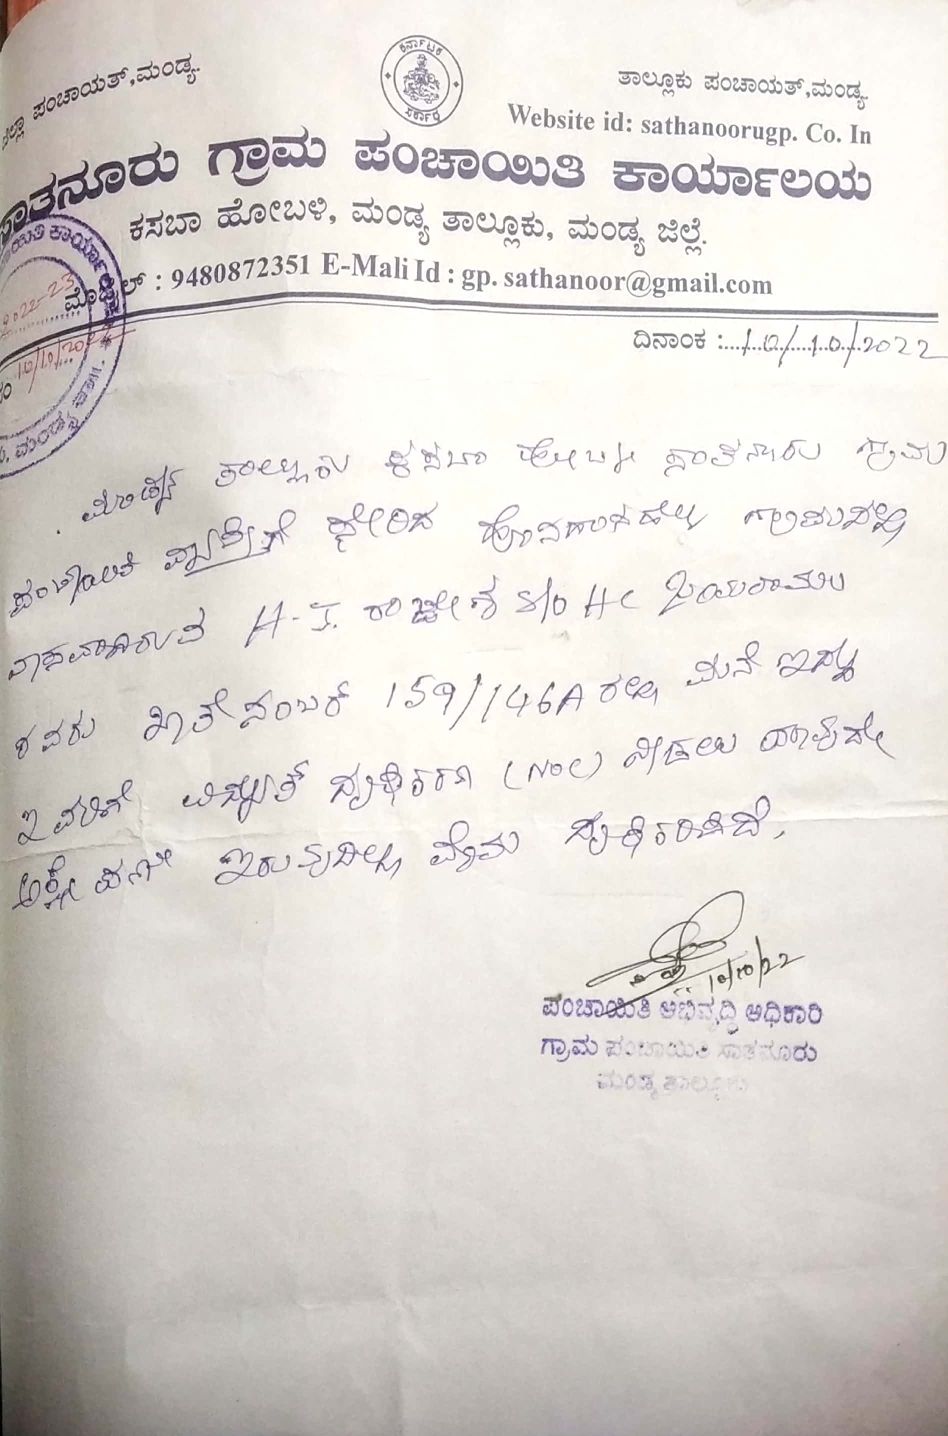 ಜಿಲ್ಲಾ ಪಂಚಾಯತ್,ಮಂಡ್ಯ.
ಕರ್ನಾಟಕ ಸರ್ಕಾರ
ತಾಲ್ಲೂಕು ಪಂಚಾಯತ್,ಮಂಡ್ಯ.
Website id: sathanoorugp. Co. In
ಸಾತನೂರು ಗ್ರಾಮ ಪಂಚಾಯಿತಿ ಕಾರ್ಯಾಲಯ
ಕಸಬಾ ಹೋಬಳಿ, ಮಂಡ್ಯ ತಾಲ್ಲೂಕು, ಮಂಡ್ಯ ಜಿಲ್ಲೆ.
ಮೊಬೈಲ್ : 9480872351 E-Mali Id : gp. sathanoor@gmail.com
2022-23
10/10/2022
ದಿನಾಂಕ : 10/10/2022
ಮಂಡ್ಯ ತಾಲ್ಲೂಕು ಕಸಬಾ ಹೋಬಳಿ ಸಾತನೂರು ಗ್ರಾಮ
ಪಂಚಾಯಿತಿ ವ್ಯಾಪ್ತಿಗೆ ಸೇರಿದ ಗ್ರಾಮದಲ್ಲಿ
ವಾಸವಾಗಿರುವ H-J. ರಾಜೇಶ S/O HC ಜಯರಾಮು
ರವರು ಖಾತೆ ನಂಬರ್ 159/146A ರಲ್ಲಿ ಮನೆ ಇದ್ದು
ಇವರಿಗೆ ವಿದ್ಯುತ್ (NOC) ನೀಡಲು ಯಾವುದೇ
ಆಕ್ಷೇಪಣೆ ಇರುವುದಿಲ್ಲ ದೃಢೀಕರಿಸಿದೆ.
10/10/22
ಪಂಚಾಯಿತಿ ಅಭಿವೃದ್ಧಿ ಅಧಿಕಾರಿ
ಗ್ರಾಮ ಪಂಚಾಯಿತಿ ಸಾತನೂರು
ಮಂಡ್ಯ ತಾಲ್ಲೂಕು